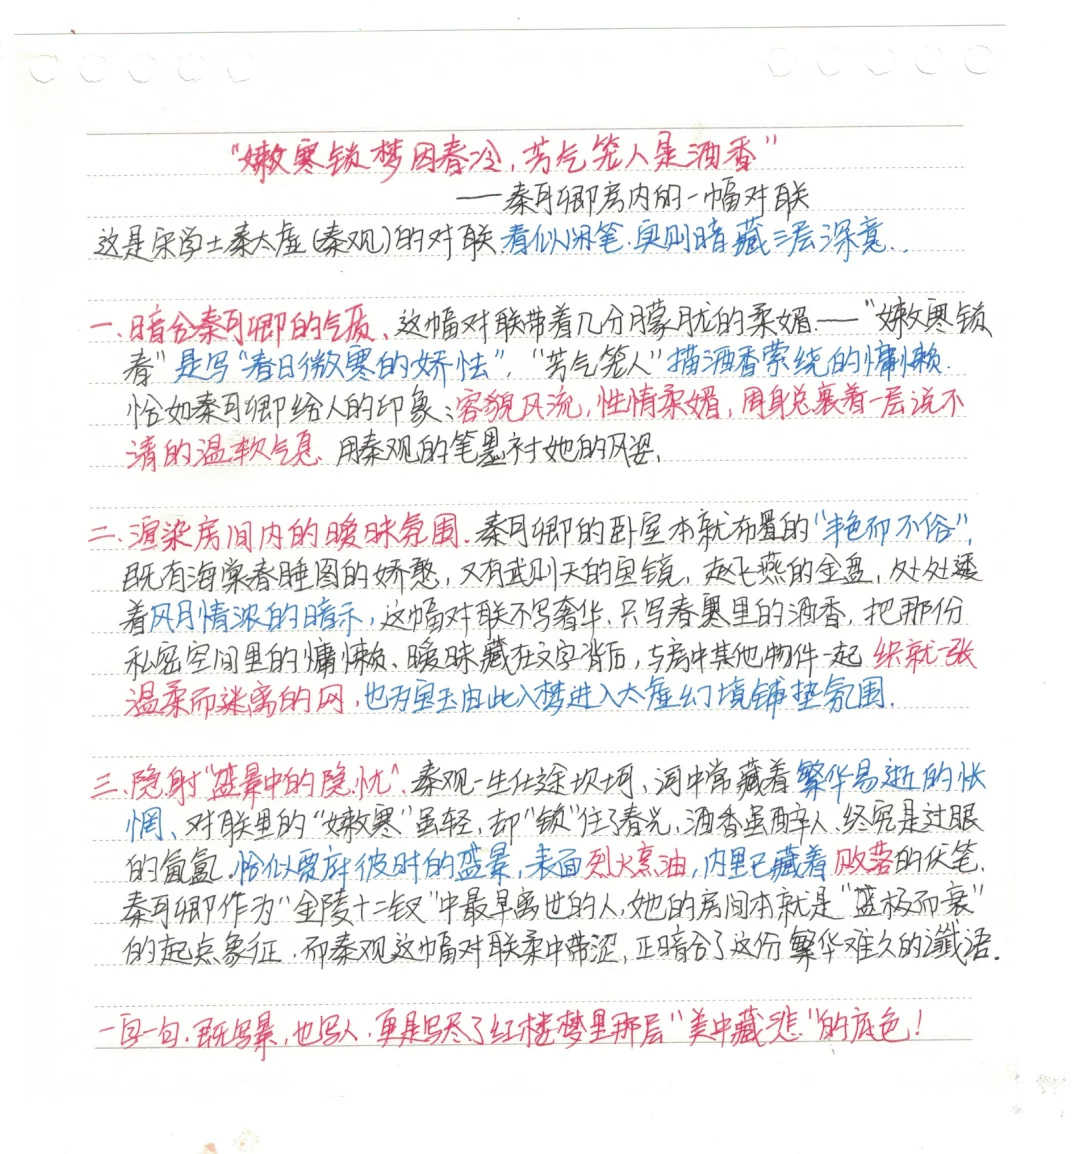 “嫩寒锁梦因春冷，芳气笼人是酒香”
——秦可卿房内的一幅对联
这是宋学士秦太虚(秦观)的对联.看似闲笔.实则暗藏三层深意..
一.暗合秦可卿的气质、这幅对联带着几分朦胧的柔媚.——“嫩寒锁
春”是写“春日微寒的娇怯”，“芳气笼人”描酒香萦绕的慵懒.
恰如秦可卿给人的印象:容貌风流,性情柔媚,周身总裹着一层说不
清的温软气息.用秦观的笔墨衬她的风姿.
二.渲染房间内的暧昧氛围.秦可卿的卧室本就布置的“艳而不俗”,
既有海棠春睡图的娇憨,又有武则天的宝镜,赵飞燕的金盘,处处透
着风月情浓的暗示,这幅对联不写奢华.只写春寒里的酒香,把那份
私密空间里的慵懒、暧昧藏在文字背后,与房中其他物件一起 织就一张
温柔而迷离的网,也为宝玉由此入梦进入太虚幻境铺垫氛围.
三.隐射“盛景中的隐忧”.秦观一生仕途坎坷,词中常藏着繁华易逝的怅
惘、对联里的“嫩寒”虽轻,却“锁”住了春光,酒香虽醉人.终究是过眼
的氤氲.恰似贾府彼时的盛景,表面烈火烹油,内里已藏着败落的伏笔.
秦可卿作为“金陵十二钗”中最早离世的人,她的房间本就是“盛极而衰”
的起点象征.而秦观这幅对联柔中带涩,正暗合了这份繁华难久的谶语.
一句一句.既写景,也写人,更是写尽了红楼梦里那层“美中藏悲”的底色!